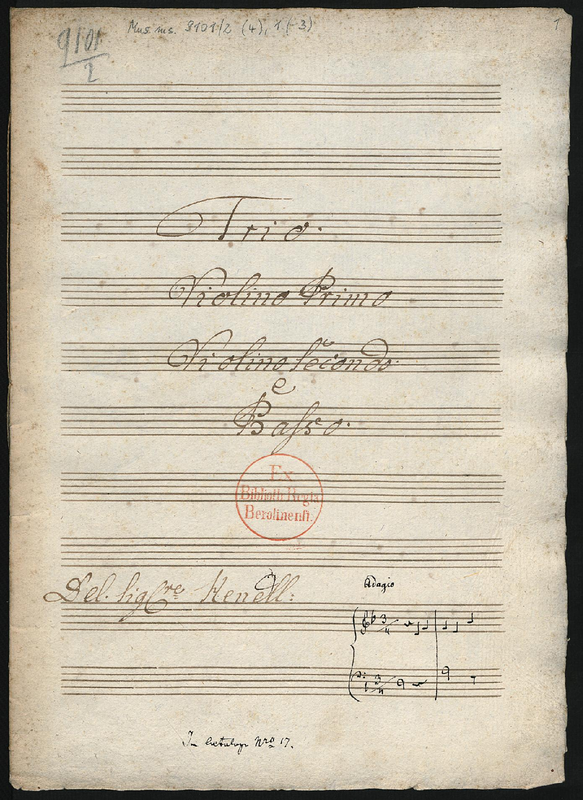 Mus. ms. 9101/2 (4), 1(-3)
1
9101
2
Trio.
Violino Primo
Violino Secondo.
e
Basso.
Ex
Biblioth. Regia
Berolinenſi.
Del. Sig:re
Adagio
3
4
3
4
Nro 17.